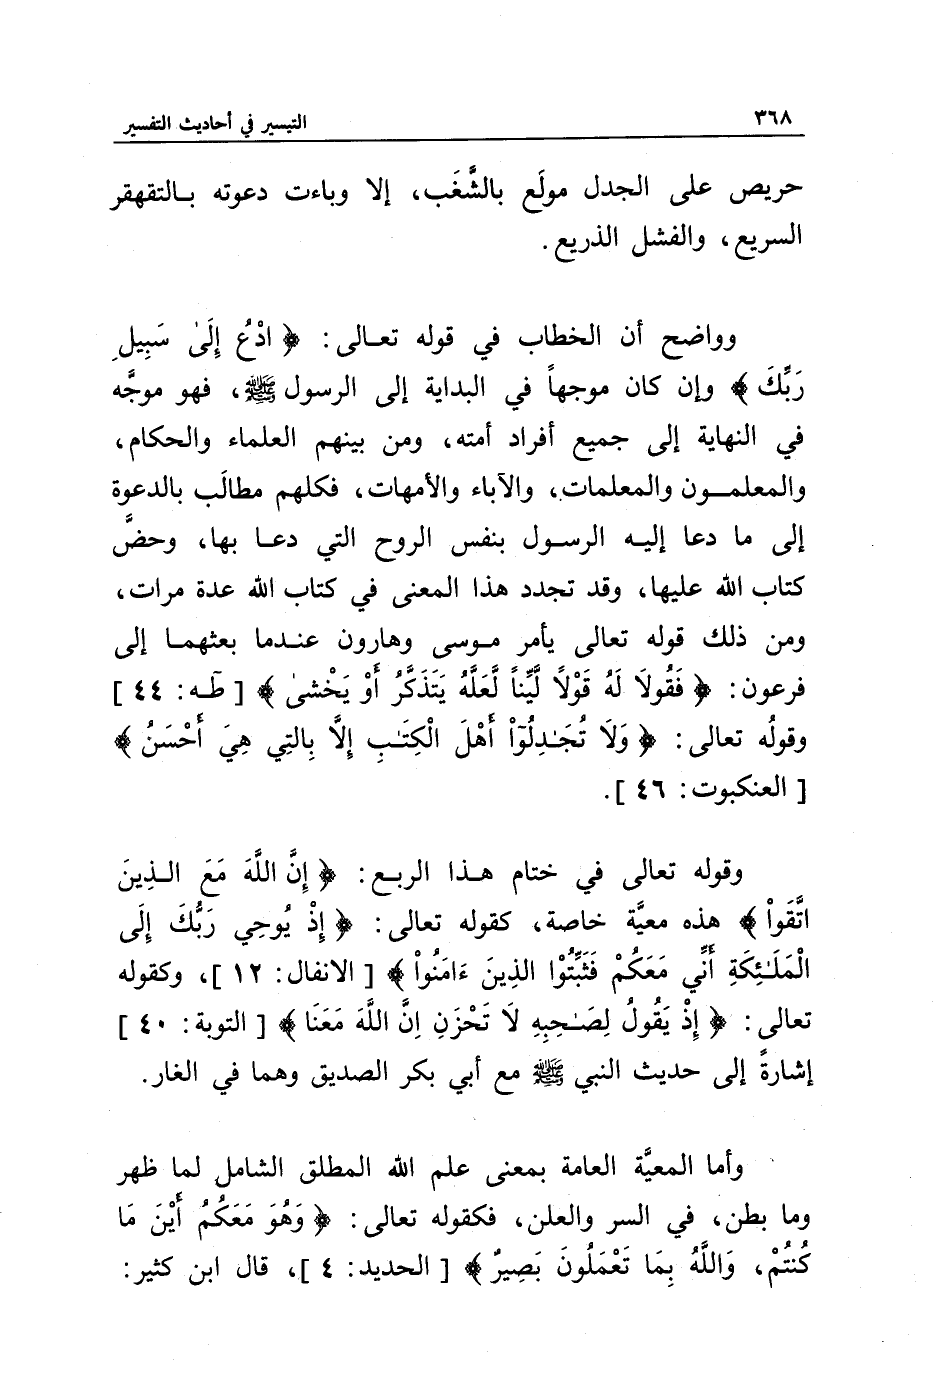 ٣٦٨
التيسير في أحاديث التفسير
حريص على الجدل مولَع بالشَّغَب، إلا وباءت دعوته بـالتقهقر
السريع، والفشل الذريع.
وواضح أن الخطاب في قوله تعـالى: ﴿ ادْعُ إِلَىٰ سَبِيلِ
رَبِّكَ ﴾ وإن كان موجهاً في البداية إلى الرسول ﷺ، فهو موجَّه
في النهاية إلى جميع أفراد أمته، ومن بينهم العلماء والحكام،
والمعلمـــون والمعلمات، والآباء والأمهات، فكلهم مطالَب بالدعوة
إلى ما دعا إليـه الرسـول بنفس الروح التي دعـا بها، وحضَّ
كتاب الله عليها، وقد تجدد هذا المعنى في كتاب الله عدة مرات،
ومن ذلك قوله تعالى يأمر مـوسى وهارون عنـدما بعثهمـا إلى
فرعون: ﴿ فَقُولَا لَهُ قَوْلًا لَّيِّناً لَّعَلَّهُ يَتَذَكَّرُ أَوْ يَخْشىٰ ﴾ [ طَـٓه: ٤٤ ]
وقولُه تعالى: ﴿ وَلَا تُجَـٰدِلُوٓاْ أَهْلَ الْكِتَـٰبِ إِلَّا بِالتِي هِيَ أَحْسَنُ ﴾
[ العنكبوت: ٤٦ ].
وقوله تعالى في ختام هـذا الربـع: ﴿ إِنَّ اللَّهَ مَعَ الـذِينَ
اتَّقَواْ ﴾ هذه معيَّة خاصة، كقوله تعالى: ﴿ إِذْ يُوحِي رَبُّكَ إِلَى
الْمَلَـٰئِكَةِ أَنِّي مَعَكُمْ فَثَبِّتُوْا الذِينَ ءَامَنُواْ ﴾ [ الانفال: ١٢ ]، وكقوله
تعالى: ﴿ إِذْ يَقُولُ لِصَـٰحِبِهِ لَا تَحْزَنِ اِنَّ اللَّهَ مَعَنَا ﴾ [ التوبة: ٤٠ ]
إشارةً إلى حديث النبي ﷺ مع أبي بكر الصديق وهما في الغار.
وأما المعيَّة العامة بمعنى علم الله المطلق الشامل لما ظهر
وما بطن، في السر والعلن، فكقوله تعالى: ﴿ وَهُوَ مَعَكُمُ أَيْنَ مَا
كُنتُمْ، وَاللَّهُ بِمَا تَعْمَلُونَ بَصِيرٌ ﴾ [ الحديد: ٤ ]، قال ابن كثير: